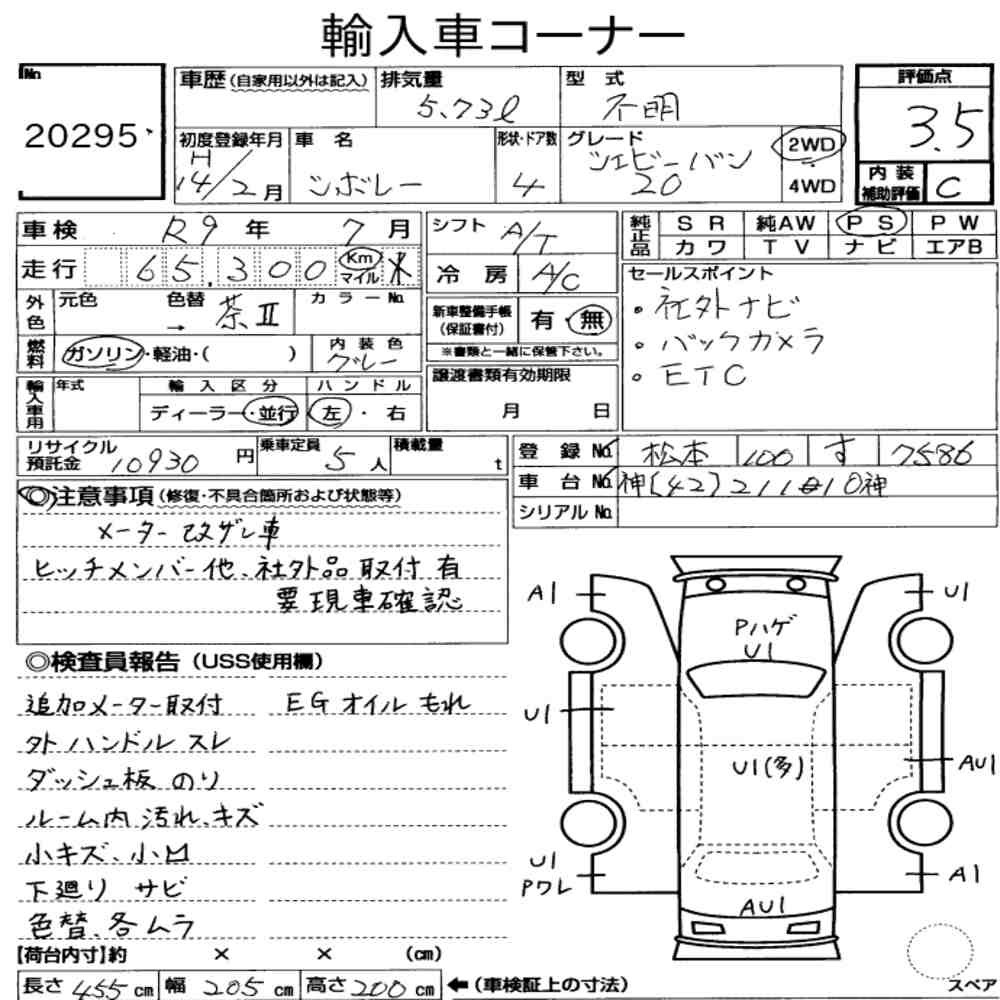 輸入車コーナー
No. 20295
車歴(自家用以外は記入) 排気量 5.73ℓ 型式 不明
評価点 3.5
初度登録年月 H14/2月 車名 シボレー 形状・ドア数 4 グレード シェビーバン 20 2WD 4WD
内装補助評価 C
車検 R9年 7月
走行 65,300 Km マイル
外色 元色 色替 → 茶II カラーNo.
燃料 ガソリン・軽油・( ) 内装色 グレー
輸入車用 年式 輸入区分 ディーラー・並行 ハンドル 左・右
シフト A/T
冷房 A/C
新車整備手帳(保証書付) 有・無
※書類と一緒に保管下さい。
譲渡書類有効期限
月 日
純正品 SR 純AW PS PW
カワ TV ナビ エアB
セールスポイント
・社外ナビ
・バックカメラ
・ETC
リサイクル預託金 10930円 乗車定員 5人 積載量 t
登録No. 松本 100 す 7586
車台No. 神[42]211010神
シリアルNo.
◎注意事項(修復・不具合箇所および状態等)
メーター改ザレ車
ヒッチメンバー他、社外品取付有
要現車確認
◎検査員報告(USS使用欄)
追加メーター取付 EGオイルもれ
外ハンドルスレ
ダッシュ板のり
ルーム内汚れ、キズ
小キズ、小凹
下廻りサビ
色替、各ムラ
【荷台内寸】約 × × (cm)
長さ 455 cm 幅 205 cm 高さ 200 cm ←(車検証上の寸法)
A1 U1
Pハゲ
U1
U1
U1(多) AU1
U1
Pワレ A1
AU1
スペア